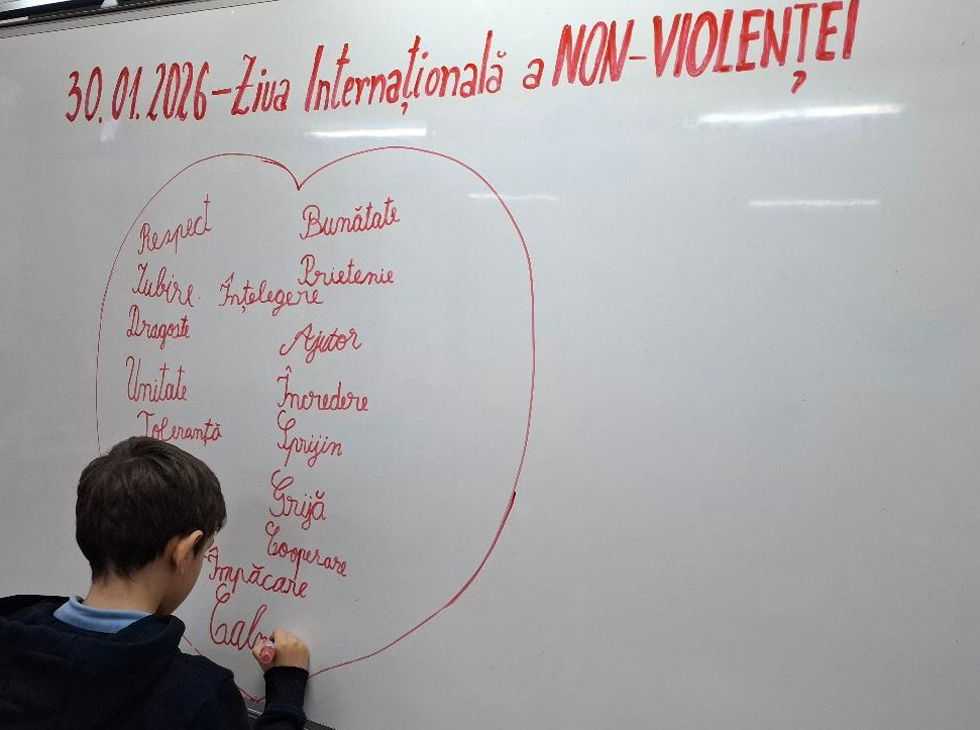 30.01.2026-Ziua Internațională a NON-VIOLENȚEI
Respect
Bunătate
Iubire
Prietenie
Înțelegere
Dragoste
Ajutor
Unitate
Încredere
Toleranță
Sprijin
Grijă
Cooperare
Împăcare
Calm